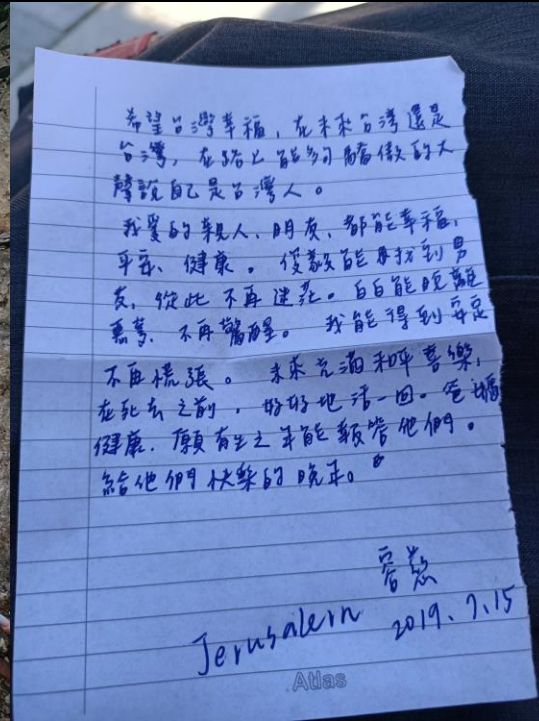 希望台灣幸福，在未來台灣還是
台灣，在路上能夠驕傲的大
聲說自己是台灣人。
我愛的親人、朋友，都能幸福，
平安、健康。俊毅能再找到男
友，從此不再迷茫。白白能脫離
噩夢，不再驚醒。我能得到安定
不再慌張。未來充滿和平喜樂，
在死去之前，好好地活一回。爸媽
健康，願有生之年能報答他們。
給他們快樂的晚年。
Jerusalem 2019.7.15
Atlas